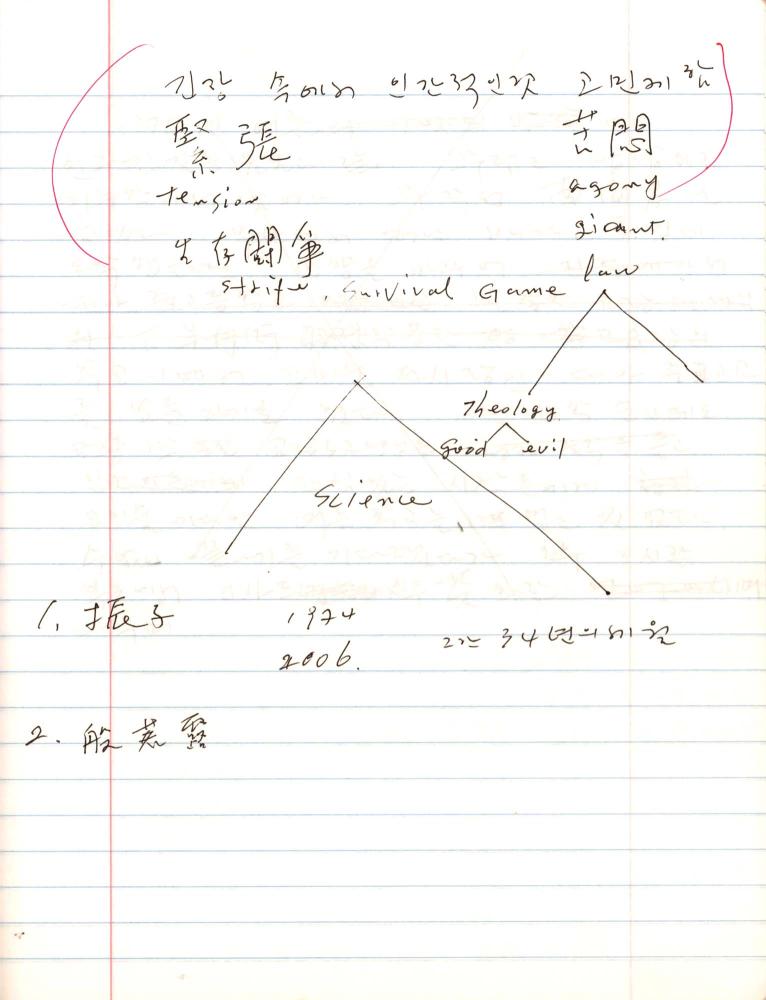 긴장 속에서 인간적인것 고민에
緊張 苦悶
tension agony
giant.
生存鬪爭
strife, Survival Game law
Theology
good evil
Science
1. 振子 1974
2006. 34년의 세월
2. 般若露